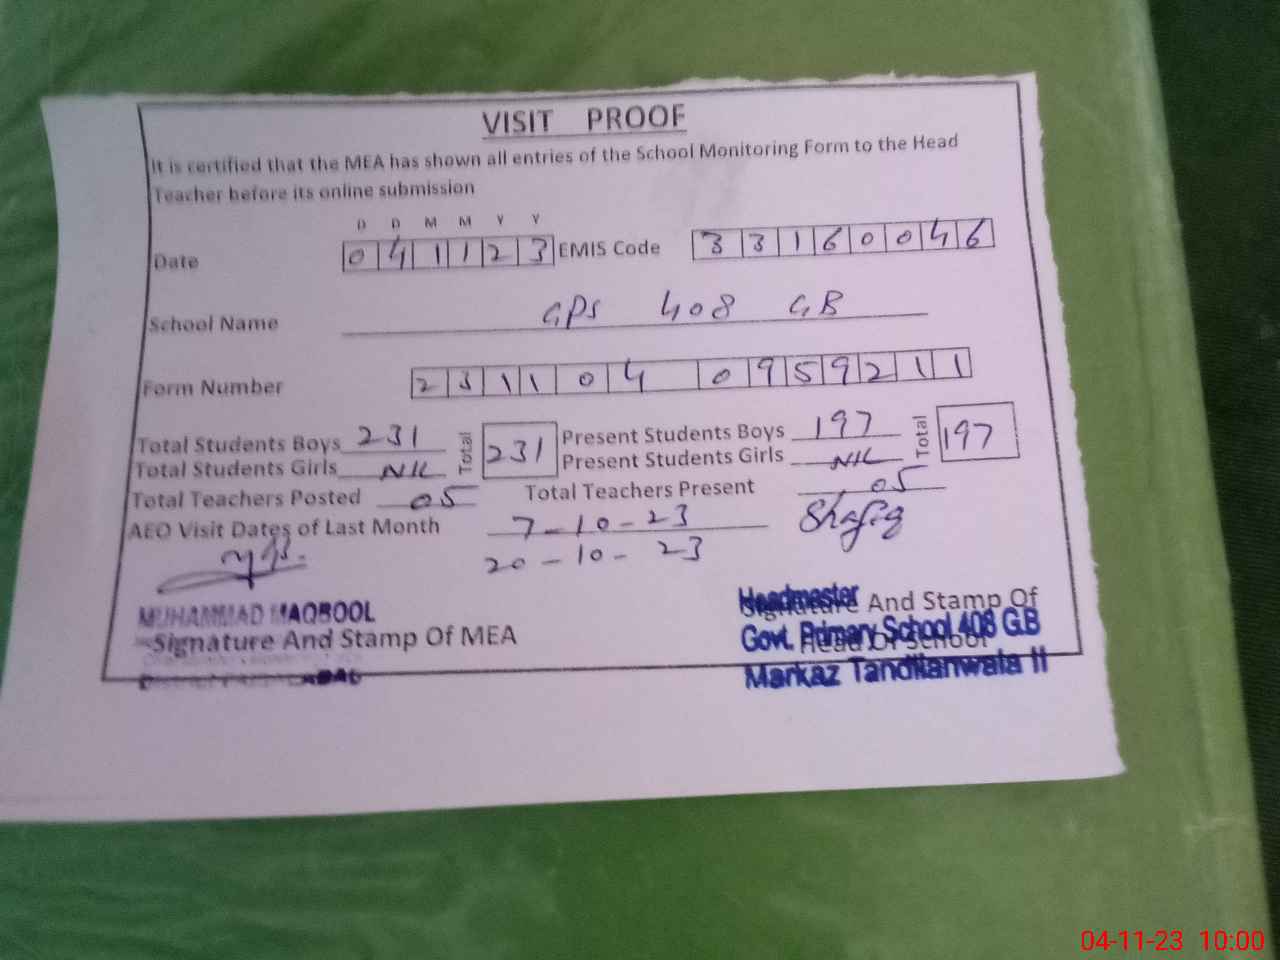 VISIT PROOF
It is certified that the MEA has shown all entries of the School Monitoring Form to the Head
Teacher before its online submission
D D M M Y Y
Date 0 4 1 1 2 3 EMIS Code 3 3 1 6 0 0 4 6
School Name GPS 408 GB
Form Number 2 3 1 1 0 4 0 9 5 9 2 1 1
Total Students Boys 231 Total 231 Present Students Boys 197 Total 197
Total Students Girls Nil Present Students Girls Nil
Total Teachers Posted 05 Total Teachers Present 05
AEO Visit Dates of Last Month 7-10-23 Shafiq
20-10-23
MUHAMMAD MAQBOOL
Signature And Stamp Of MEA
Headmester
Signature And Stamp Of
Govt. Primary School 408 G.B
Head Of School
Markaz Tandlianwala II
04-11-23 10:00